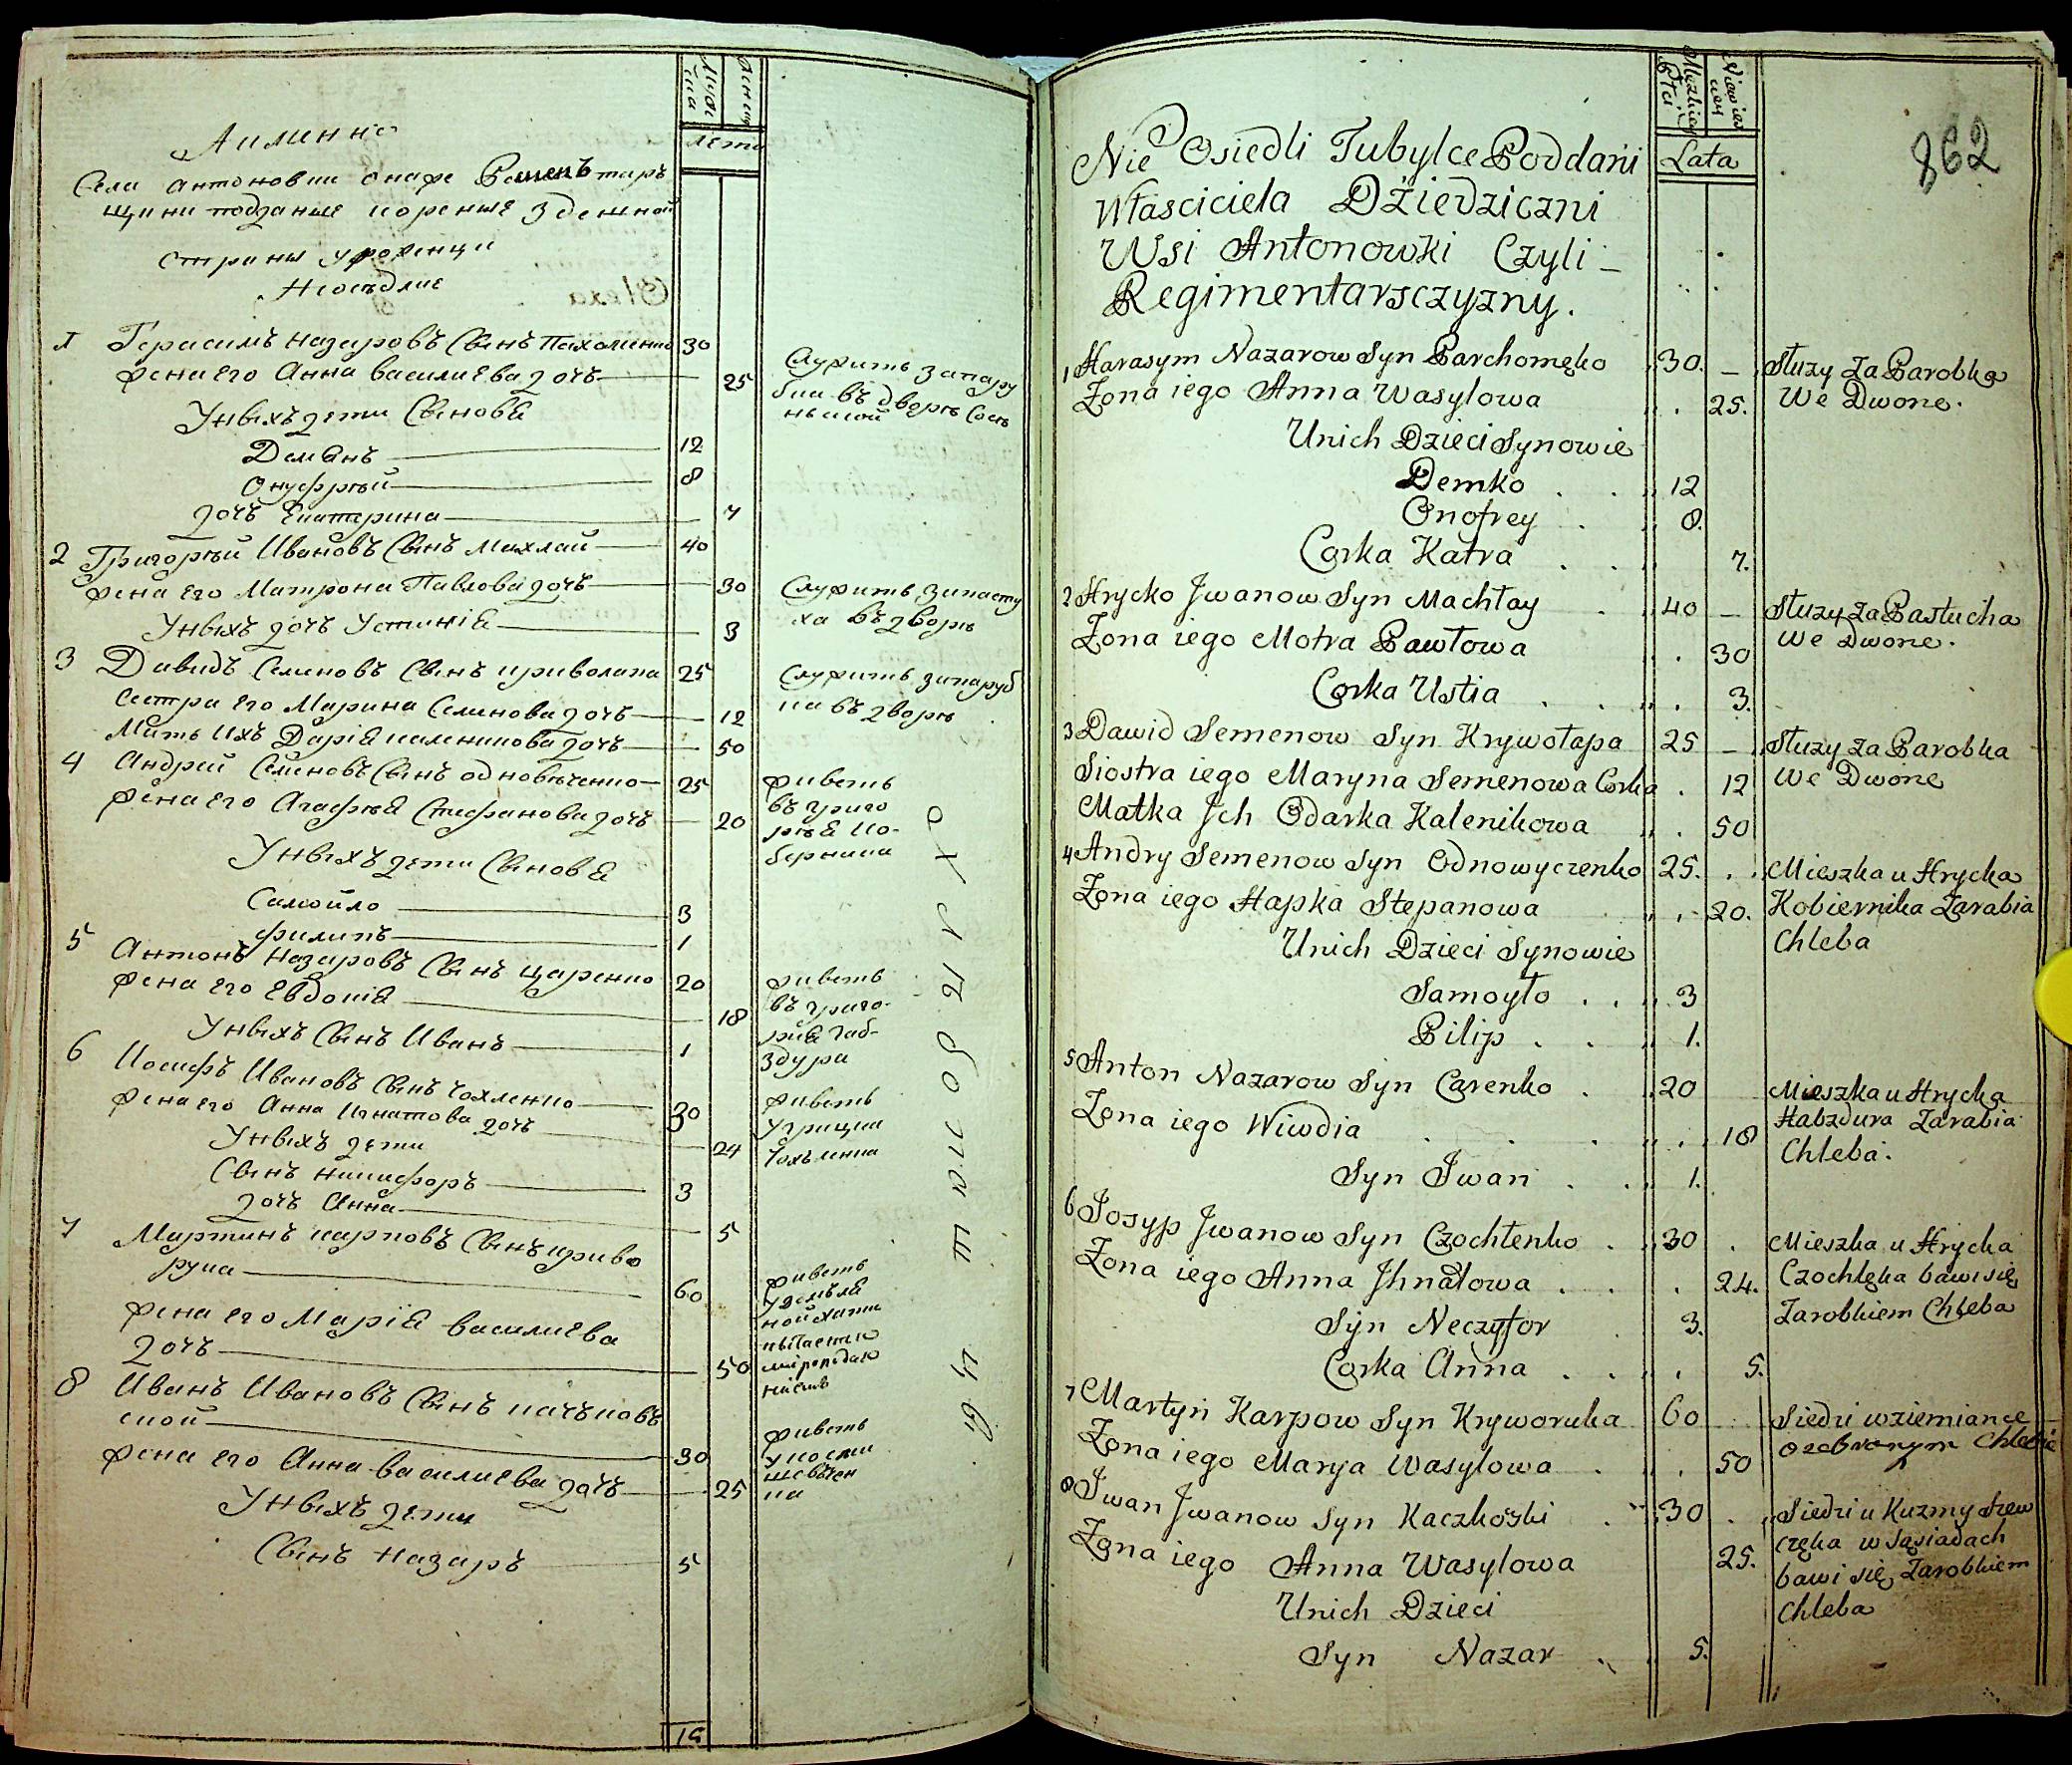 Аименно
Села антоновки онаже Рементар
щини подданые кореные здешной
страны уроженци
Неоседлие
Мужска
Женска
Лета
1 Герасимъ Назаровъ Сынъ Пахоменко 30
жена его Анна василиева дочъ 25
Служитъ запару
бка въ дворе
Унихъ дети Сыновя
Демянъ 12
Онуфрый 8
дочъ Екатерина 7
2 Григорый Ивановъ Сынъ Махлай 40
жена его Матрона Павлова дочъ 30
Служитъ запасту
ха въ дворе
Унихъ дочъ Устинія 3
3 Давидъ Семеновъ Сынъ криволапа 25
Служитъ запаруб
ка въ дворе
Сестра его Марина Семинова дочъ 12
Мать Ихъ Дарія каленикова дочъ 50
4 Андрей Семиновъ Сынъ одновеченко 25
жена его Агафія Стефанова дочъ 20
живетъ
въ григо
рыя ко-
берника
Унихъ дети Сыновя
Самойло 3
Филипъ 1
5 Антонъ Назаровъ Сынъ царенко 20
жена его Евдокія 18
живетъ
въ григо-
рия габ-
здура
Унихъ Сынъ Иванъ 1
6 Иосифъ Ивановъ Сынъ Чохленко 30
жена его Анна Игнатова дочъ 24
живетъ
угрицка
Чохленка
Унихъ дети
Сынъ никифоръ 3
дочъ Анна 5
7 Мартинъ карповъ Сынъ криво
рука 60
жена его Марія василиева
дочъ 50
живетъ
уземля
ной хати
8 Иванъ Ивановъ Сынъ качъковъ
ской 30
жена его Анна василиева дочъ 25
живетъ
Унихъ дети
Сынъ Назаръ 5
15
862
Męzkiey Płci
Niewiesciey
Lata
Nie Osiedli Tubylce Poddani
Własciciela Dżiedziczni
Wsi Antonowki Czyli
Regimentarsczyzny.
1 Harasym Nazarow Syn Parchomęko 30. Służy Za Parobka
Żona iego Anna Wasylowa 25. We Dworze.
Unich Dzieci Synowie
Demko 12
Onofrey 8.
Corka Katra 7.
2 Hrycko Jwanow Syn Machłay 40 Służy Za Pastucha
Żona iego Motra Pawłowa 30 We Dworze.
Corka Ustia 3.
3 Dawid Semenow Syn Krywołapa 25 Służy Za Parobka
Siostra iego Maryna Semenowa Corka 12 We Dworze
Matka Jch Odarka Kalenikowa 50
4 Andry Semenow Syn Odnowyczenko 25. Mieszka u Hrycka
Żona iego Hapka Stepanowa 20. Kobiernika Zarabia
Chleba
Unich Dzieci Synowie
Samoyło 3
Pilip 1.
5 Anton Nazarow Syn Carenko 20 Mieszka u Hrycka
Żona iego Wiwdia 18 Habzdura Zarabia
Chleba.
Syn Jwan 1.
6 Josyp Jwanow Syn Czochłenko 30 Mieszka u Hrycka
Żona iego Anna Jhnatowa 24. Czochlęka bawi się
Zarobkiem Chleba
Syn Neczyfor 3.
Corka Anna 5.
7 Martyn Karpow Syn Kryworuka 60 Siedzi wziemiance
Żona iego Marya Wasylowa 50 ozebranym Chlebie
8 Jwan Jwanow Syn Kaczkoski 30 Siedzi u Kuzmy Szew
Żona iego Anna Wasylowa 25. częka w Sąsiadach
bawi się Zarobkiem
Chleba
Unich Dzieci
Syn Nazar 5.